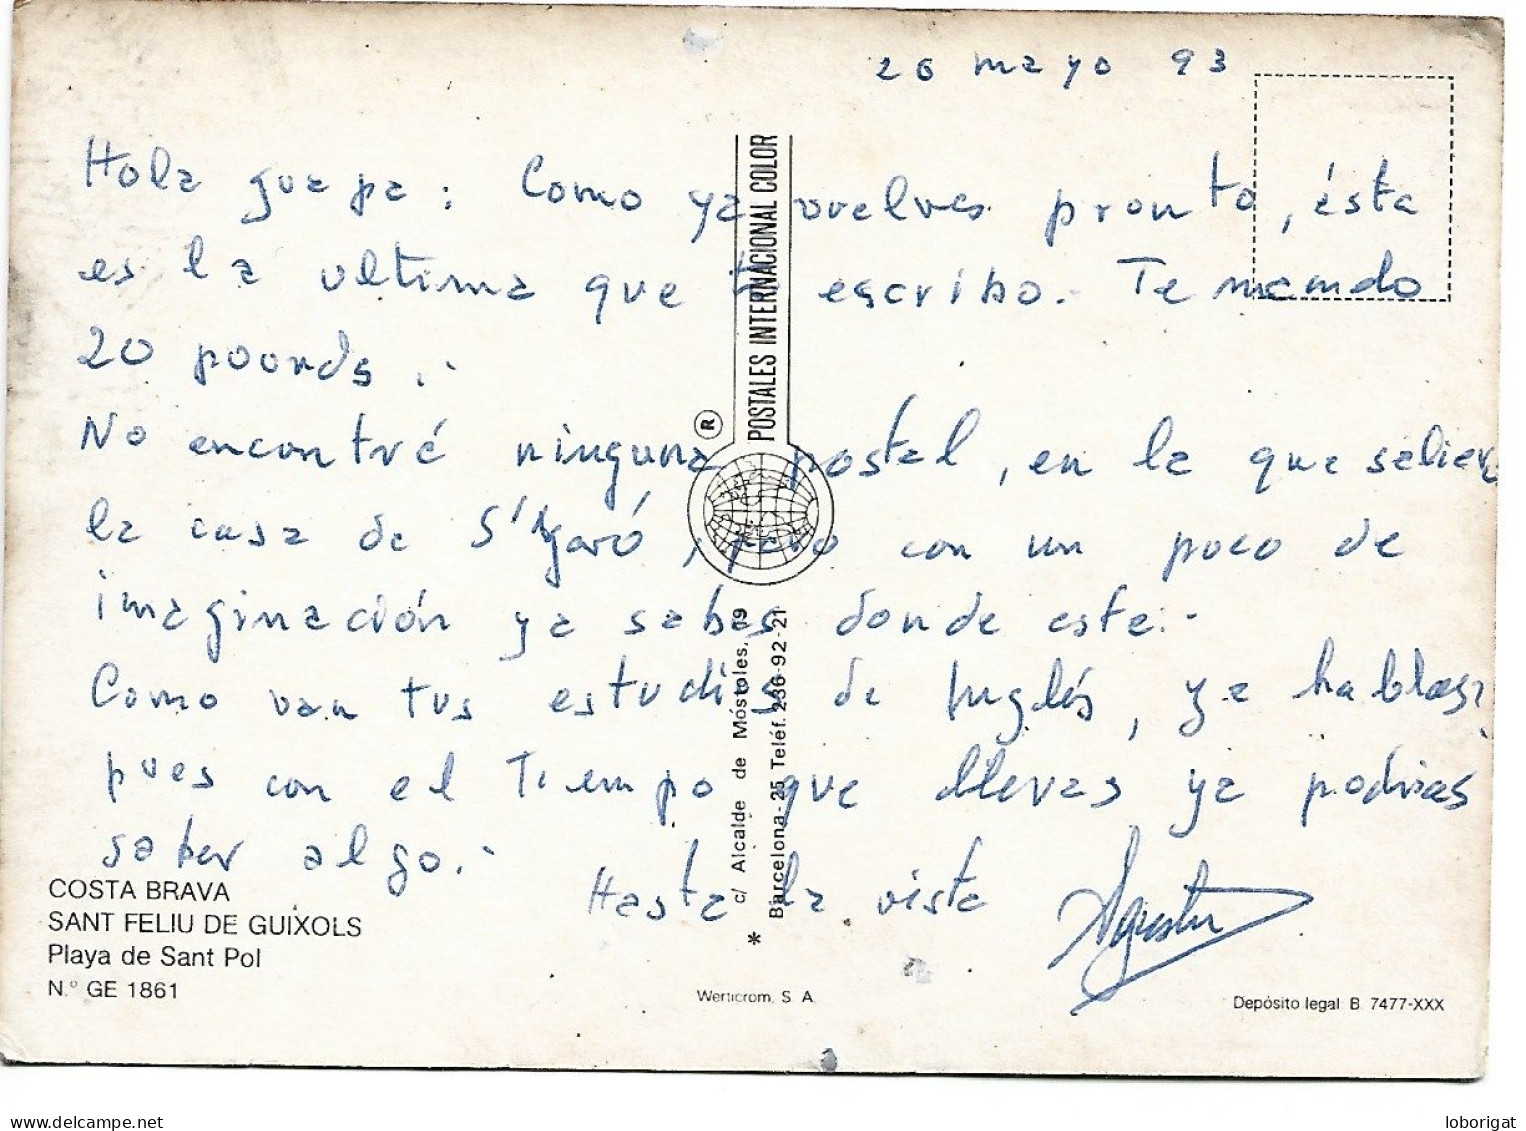 26 mayo 93
Hola guapa: Como ya vuelves pronto, ésta
es la ultima que te escribo.- Te mando
20 pounds.-
No encontré ninguna postal, en la que saliera
la casa de S'Agaró, pero con un poco de
imaginación ya sabes donde este.-
Como van tus estudios de Inglés, ya hablas?
pues con el Tiempo que llevas ya podrias
saber algo.-
Hasta la vista Agustin
POSTALES INTERNACIONAL COLOR
®
c/ Alcalde de Móstoles, 19
Barcelona-25 Teléf. 236-92-21
*
COSTA BRAVA
SANT FELIU DE GUIXOLS
Playa de Sant Pol
N.º GE 1861
Werticrom, S. A.
Depósito legal: B. 7477-XXX
loborigat